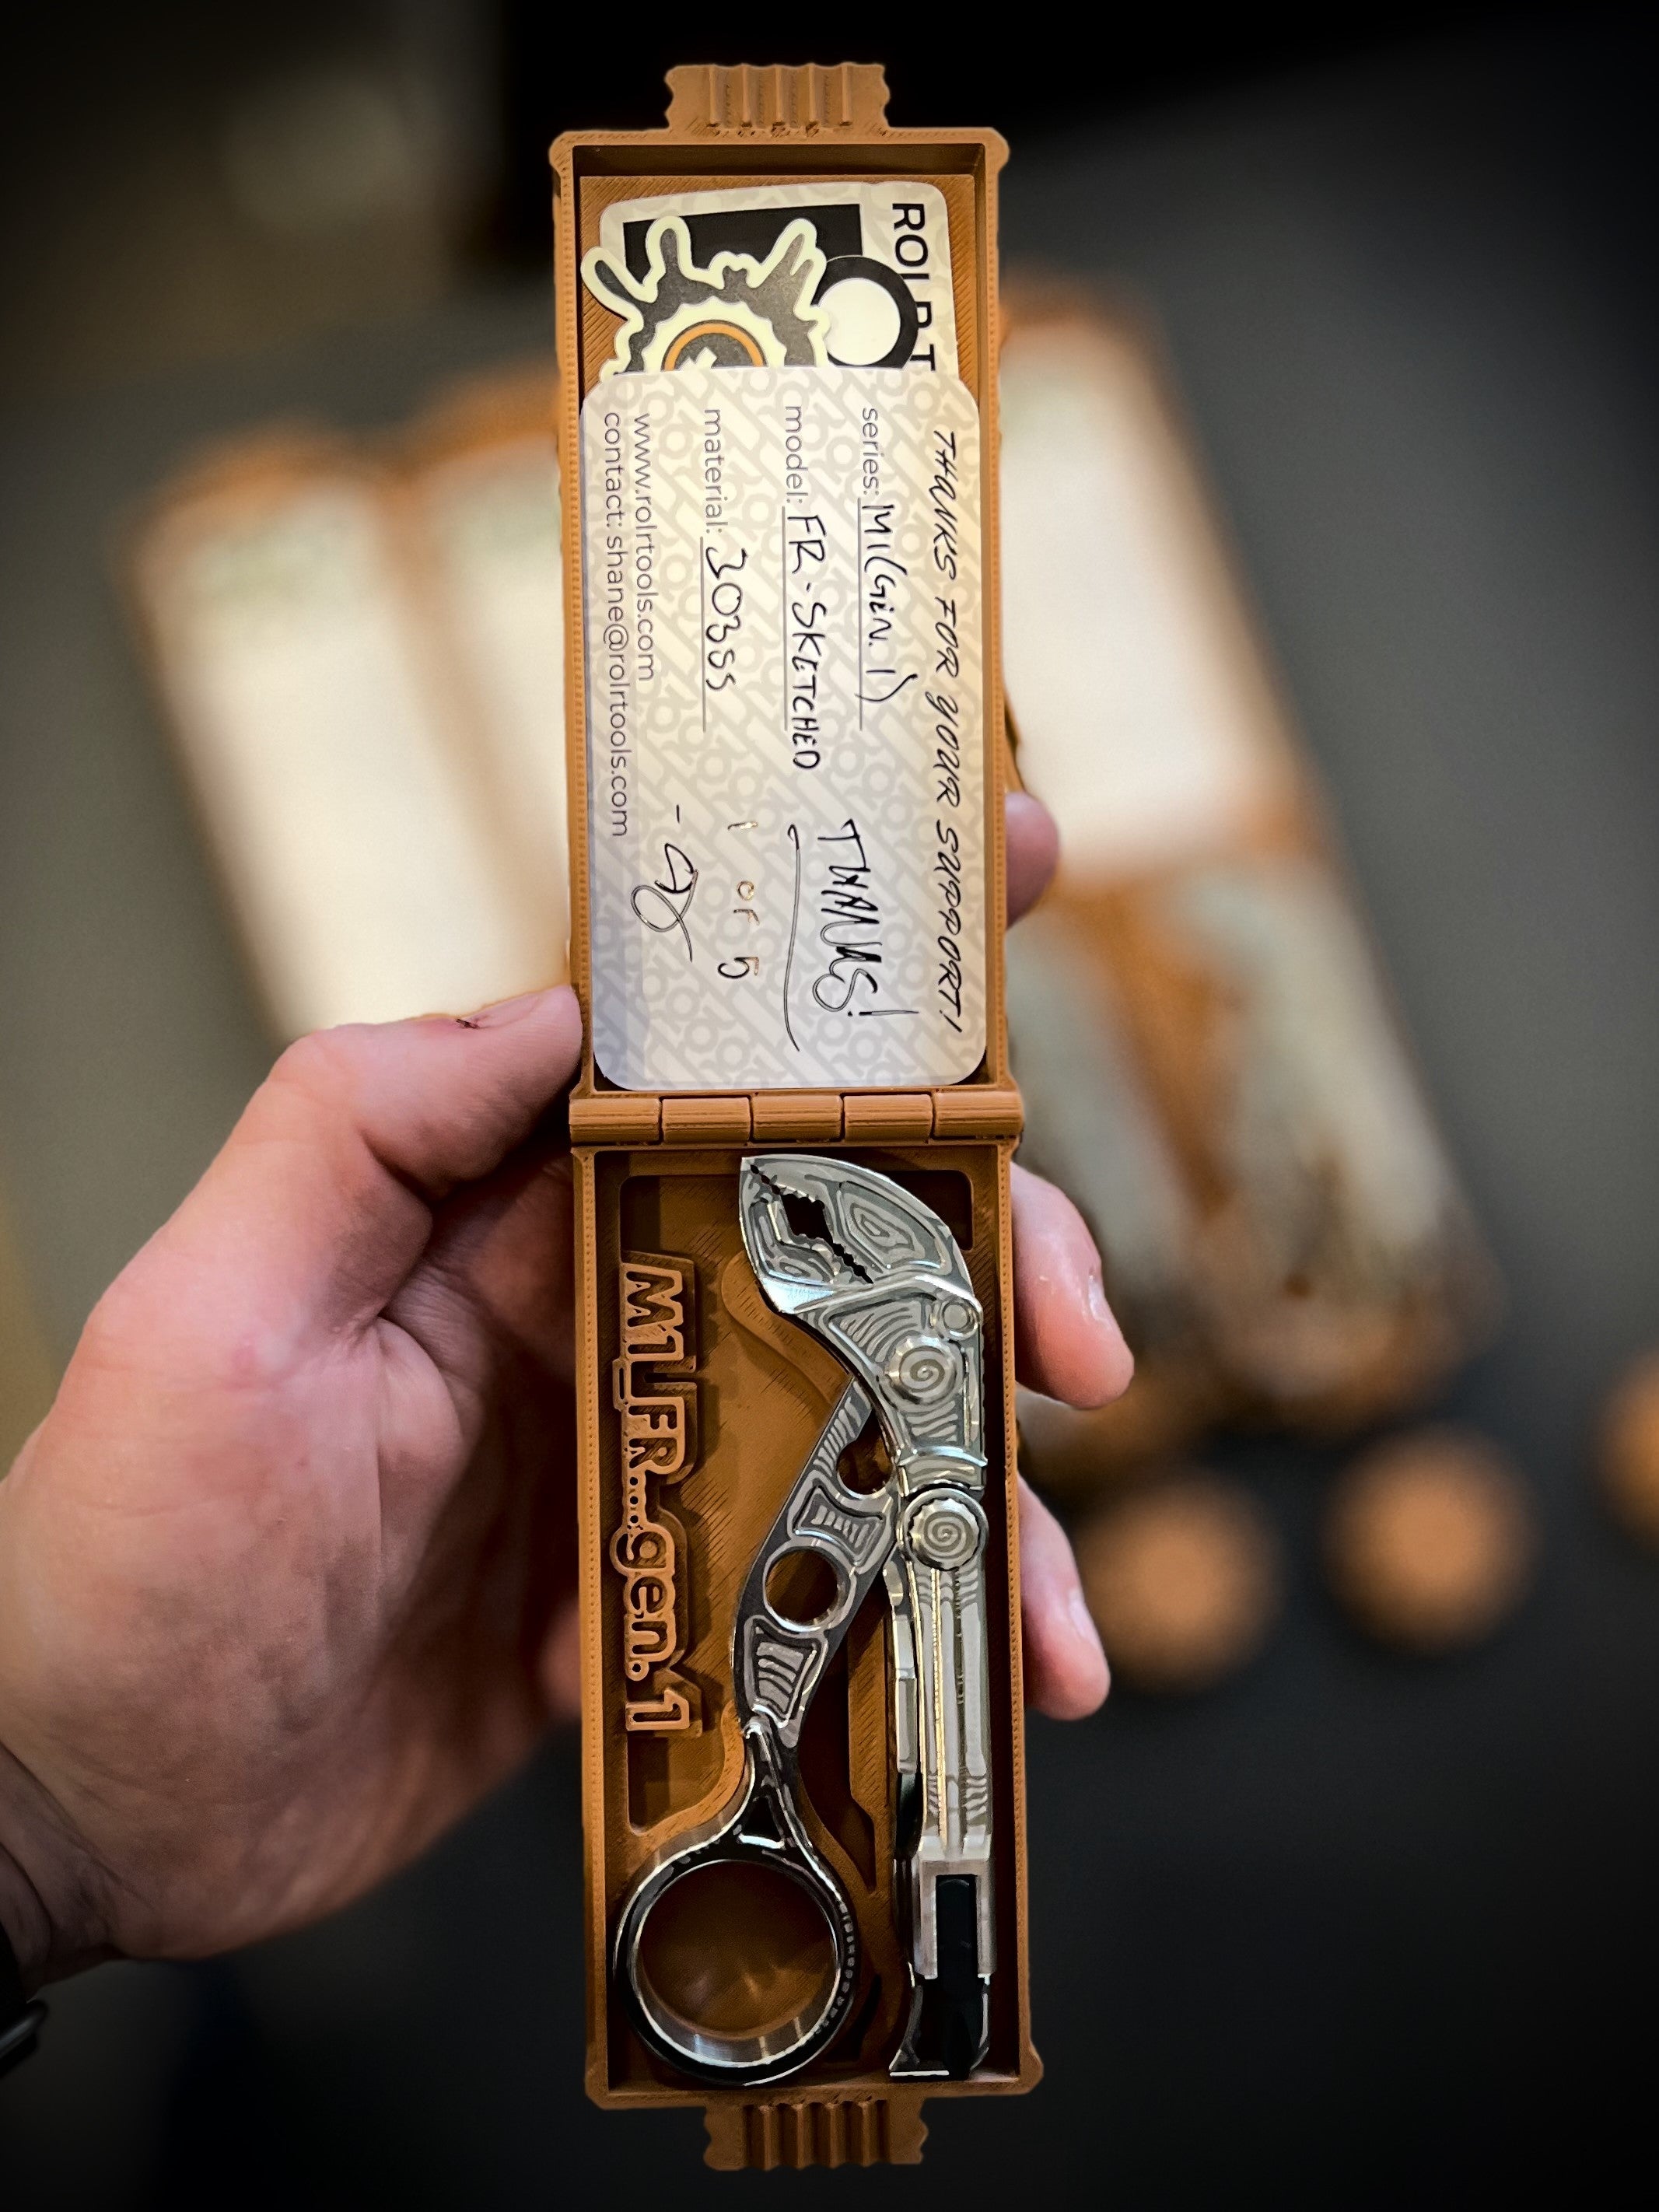 ROLR T
THANKS FOR YOUR SUPPORT!
series: M1(GEN.1)
model: FR-SKETCHED
material: 303SS
www.rolrtools.com
contact: shane@rolrtools.com
THANKS!
1 of 5
M1_FR...gen.1